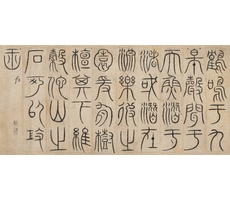 鶴鳴于九
皋聲聞于
天魚在于
渚或潛在
淵樂彼之
園爰有樹
檀其下維
榖它山之
石可以攻
玉